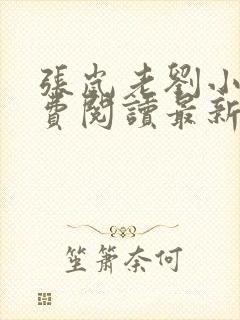 張嵐,老劉小
費閱讀最新
笙簫奈何